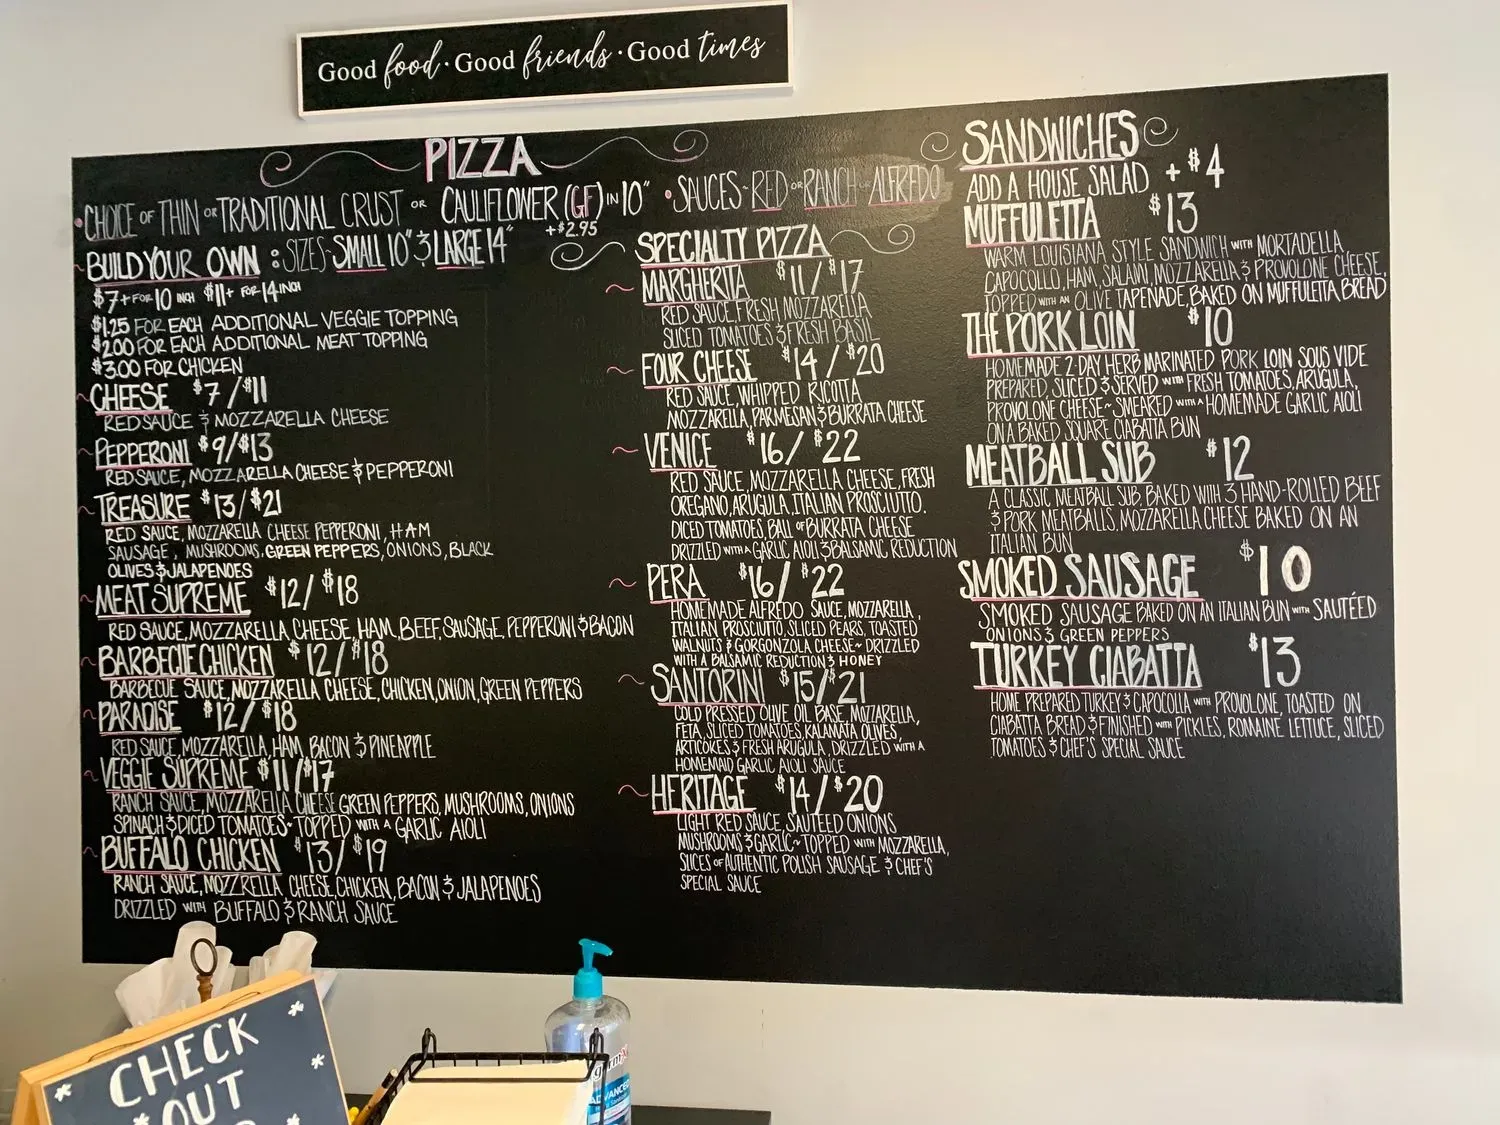 Good food · Good friends · Good times
PIZZA
• CHOICE OF THIN OR TRADITIONAL CRUST OR CAULIFLOWER (GF) IN 10"
+$2.95
• SAUCES ~ RED OR RANCH OR ALFREDO
BUILD YOUR OWN : SIZES SMALL 10" & LARGE 14"
$7+ FOR 10 INCH $11+ FOR 14 INCH
$1.25 FOR EACH ADDITIONAL VEGGIE TOPPING
$2.00 FOR EACH ADDITIONAL MEAT TOPPING
$3.00 FOR CHICKEN
CHEESE $7/$11
RED SAUCE & MOZZARELLA CHEESE
PEPPERONI $9/$13
RED SAUCE, MOZZARELLA CHEESE & PEPPERONI
TREASURE $13/$21
RED SAUCE, MOZZARELLA CHEESE PEPPERONI, HAM
SAUSAGE, MUSHROOMS, GREEN PEPPERS, ONIONS, BLACK
OLIVES & JALAPENOES
MEAT SUPREME $12/$18
RED SAUCE, MOZZARELLA CHEESE, HAM, BEEF, SAUSAGE, PEPPERONI & BACON
BARBECUE CHICKEN $12/$18
BARBECUE SAUCE, MOZZARELLA CHEESE, CHICKEN, ONION, GREEN PEPPERS
PARADISE $12/$18
RED SAUCE, MOZZARELLA, HAM, BACON & PINEAPPLE
VEGGIE SUPREME $11/$17
RANCH SAUCE, MOZZARELLA CHEESE GREEN PEPPERS, MUSHROOMS, ONIONS
SPINACH & DICED TOMATOES ~ TOPPED WITH A GARLIC AIOLI
BUFFALO CHICKEN $13/$19
RANCH SAUCE, MOZZRELLA CHEESE, CHICKEN, BACON & JALAPENOES
DRIZZLED WITH BUFFALO & RANCH SAUCE
SPECIALTY PIZZA
MARGHERITA $11/$17
RED SAUCE, FRESH MOZZARELLA
SLICED TOMATOES & FRESH BASIL
FOUR CHEESE $14/$20
RED SAUCE, WHIPPED RICOTTA
MOZZARELLA, PARMESAN & BURRATA CHEESE
VENICE $16/$22
RED SAUCE, MOZZARELLA CHEESE, FRESH
OREGANO, ARUGULA, ITALIAN PROSCIUTTO.
DICED TOMATOES, BALL OF BURRATA CHEESE
DRIZZLED WITH A GARLIC AIOLI & BALSAMIC REDUCTION
PERA $16/$22
HOMEMADE ALFREDO SAUCE, MOZZARELLA,
ITALIAN PROSCIUTTO, SLICED PEARS, TOASTED
WALNUTS & GORGONZOLA CHEESE ~ DRIZZLED
WITH A BALSAMIC REDUCTION & HONEY
SANTORINI $15/$21
COLD PRESSED OLIVE OIL BASE, MOZZARELLA,
FETA, SLICED TOMATOES, KALAMATA OLIVES,
ARTICOKES & FRESH ARUGULA, DRIZZLED WITH A
HOMEMAID GARLIC AIOLI SAUCE
HERITAGE $14/$20
LIGHT RED SAUCE, SAUTEED ONIONS
MUSHROOMS & GARLIC ~ TOPPED WITH MOZZARELLA,
SLICES OF AUTHENTIC POLISH SAUSAGE & CHEF'S
SPECIAL SAUCE
SANDWICHES
ADD A HOUSE SALAD + $4
MUFFULETTA $13
WARM LOUISIANA STYLE SANDWICH WITH MORTADELLA,
CAPOCOLLO, HAM, SALAMI, MOZZARELLA & PROVOLONE CHEESE,
TOPPED WITH AN OLIVE TAPENADE, BAKED ON MUFFULETTA BREAD
THE PORK LOIN $10
HOMEMADE 2-DAY HERB MARINATED PORK LOIN SOUS VIDE
PREPARED, SLICED & SERVED WITH FRESH TOMATOES, ARUGULA,
PROVOLONE CHEESE ~ SMEARED WITH A HOMEMADE GARLIC AIOLI
ON A BAKED SQUARE CIABATTA BUN
MEATBALL SUB $12
A CLASSIC MEATBALL SUB, BAKED WITH 3 HAND-ROLLED BEEF
& PORK MEATBALLS, MOZZARELLA CHEESE BAKED ON AN
ITALIAN BUN
SMOKED SAUSAGE $10
SMOKED SAUSAGE BAKED ON AN ITALIAN BUN WITH SAUTÉED
ONIONS & GREEN PEPPERS
TURKEY CIABATTA $13
HOME PREPARED TURKEY & CAPOCOLLA WITH PROVOLONE, TOASTED ON
CIABATTA BREAD & FINISHED WITH PICKLES, ROMAINE LETTUCE, SLICED
TOMATOES & CHEF'S SPECIAL SAUCE
CHECK
OUT
ADVANCED